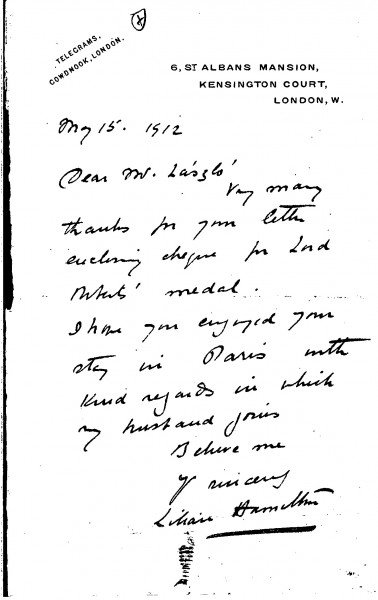 8
TELEGRAMS,
COWDNOOK, LONDON.
6, ST ALBANS MANSION,
KENSINGTON COURT,
LONDON, W.
May 15. 1912
Dear Mr. László
Very many
thanks for your letter
enclosing cheque for Lord
Roberts' medal.
I hope you enjoyed your
stay in Paris with
kind regards in which
my husband joins
Believe me
Yrs sincerely
Lilian Hamilton